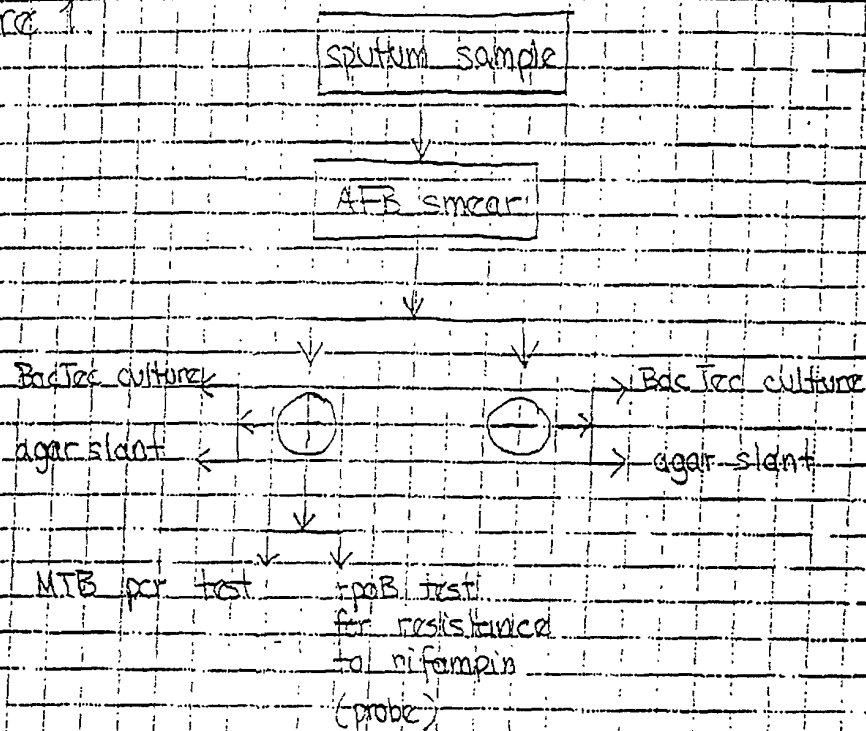 1
sputum sample
AFB smear
BacTec culture
BacTec culture
+
-
agar slant
agar slant
MTB pcr test
rpoB test
for resistance
to rifampin
(probe)